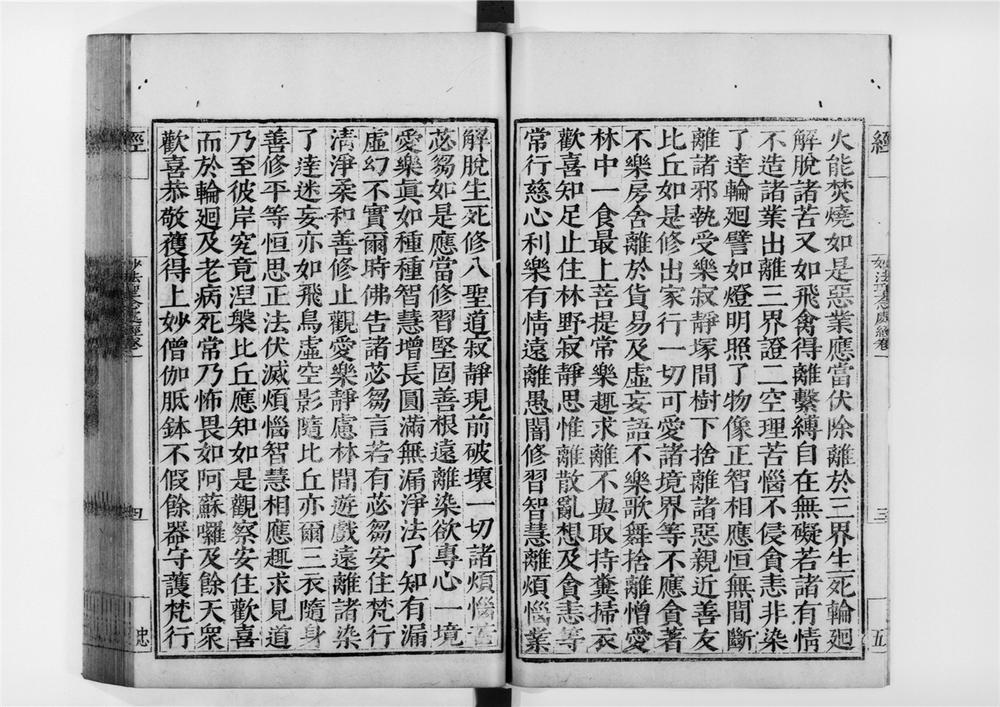 經
妙法聖念處經卷一
三
五
火能焚燒如是惡業應當伏除離於三界生死輪廻
解脫諸苦又如飛禽得離繫縛自在無礙若諸有情
不造諸業出離三界證二空理苦惱不侵貪恚非染
了達輪廻譬如燈明照了物像正智相應恒無間斷
離諸邪執受樂寂靜塚間樹下捨離諸惡親近善友
比丘如是修出家行一切可愛諸境界等不應貪著
不樂房舍離於貨易及虛妄語不樂歌舞捨離憎愛
林中一食最上菩提常樂趣求離不與取持糞掃衣
歡喜知足止住林野寂靜思惟離散亂想及貪恚等
常行慈心利樂有情遠離愚闇修習智慧離煩惱業
解脫生死修八聖道寂靜現前破壞一切諸煩惱
苾芻如是應當修習堅固善根遠離染欲專心一境
愛樂眞如種種智慧增長圓滿無漏淨法了知有漏
虛幻不實爾時佛告諸苾芻言若有苾芻安住梵行
清淨柔和善修止觀愛樂靜慮林間遊戲遠離諸染
了達迷妄亦如飛鳥虛空影隨比丘亦爾三衣隨身
善修平等恒思正法伏滅煩惱智慧相應趣求見道
乃至彼岸究竟涅槃比丘應知如是觀察安住歡喜
而於輪廻及老病死常乃怖畏如阿蘇囉及餘天衆
歡喜恭敬獲得上妙僧伽胝鉢不假餘器守護梵行
經
妙法聖念處經卷一
四
忠